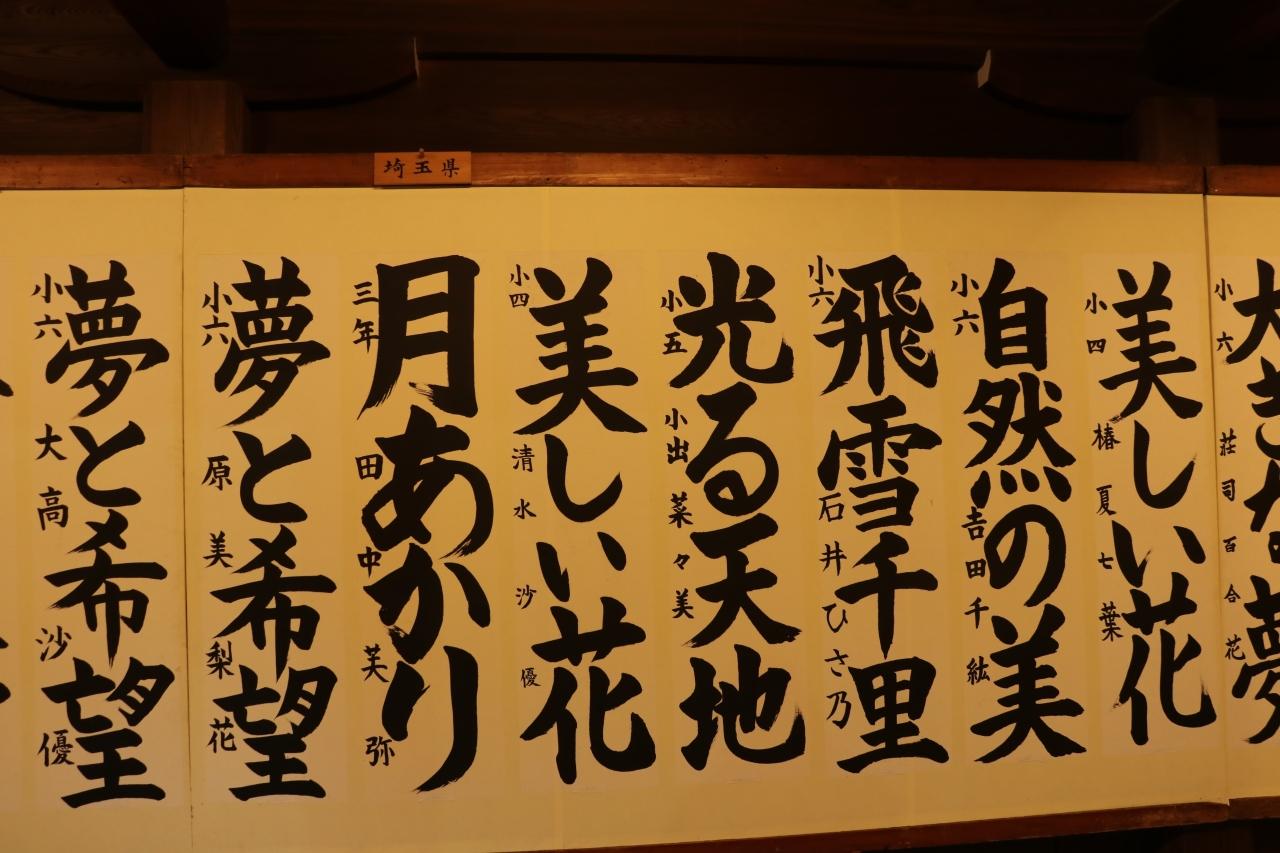 埼玉県
小六
荘司百合花
美しい花
小四
椿夏七葉
自然の美
小六
吉田千紘
飛雪千里
小六
石井ひさ乃
光る天地
小五
小出菜々美
美しい花
小四
清水沙優
月あかり
三年
田中芙弥
夢と希望
小六
原美梨花
夢と希望
小六
大高沙優